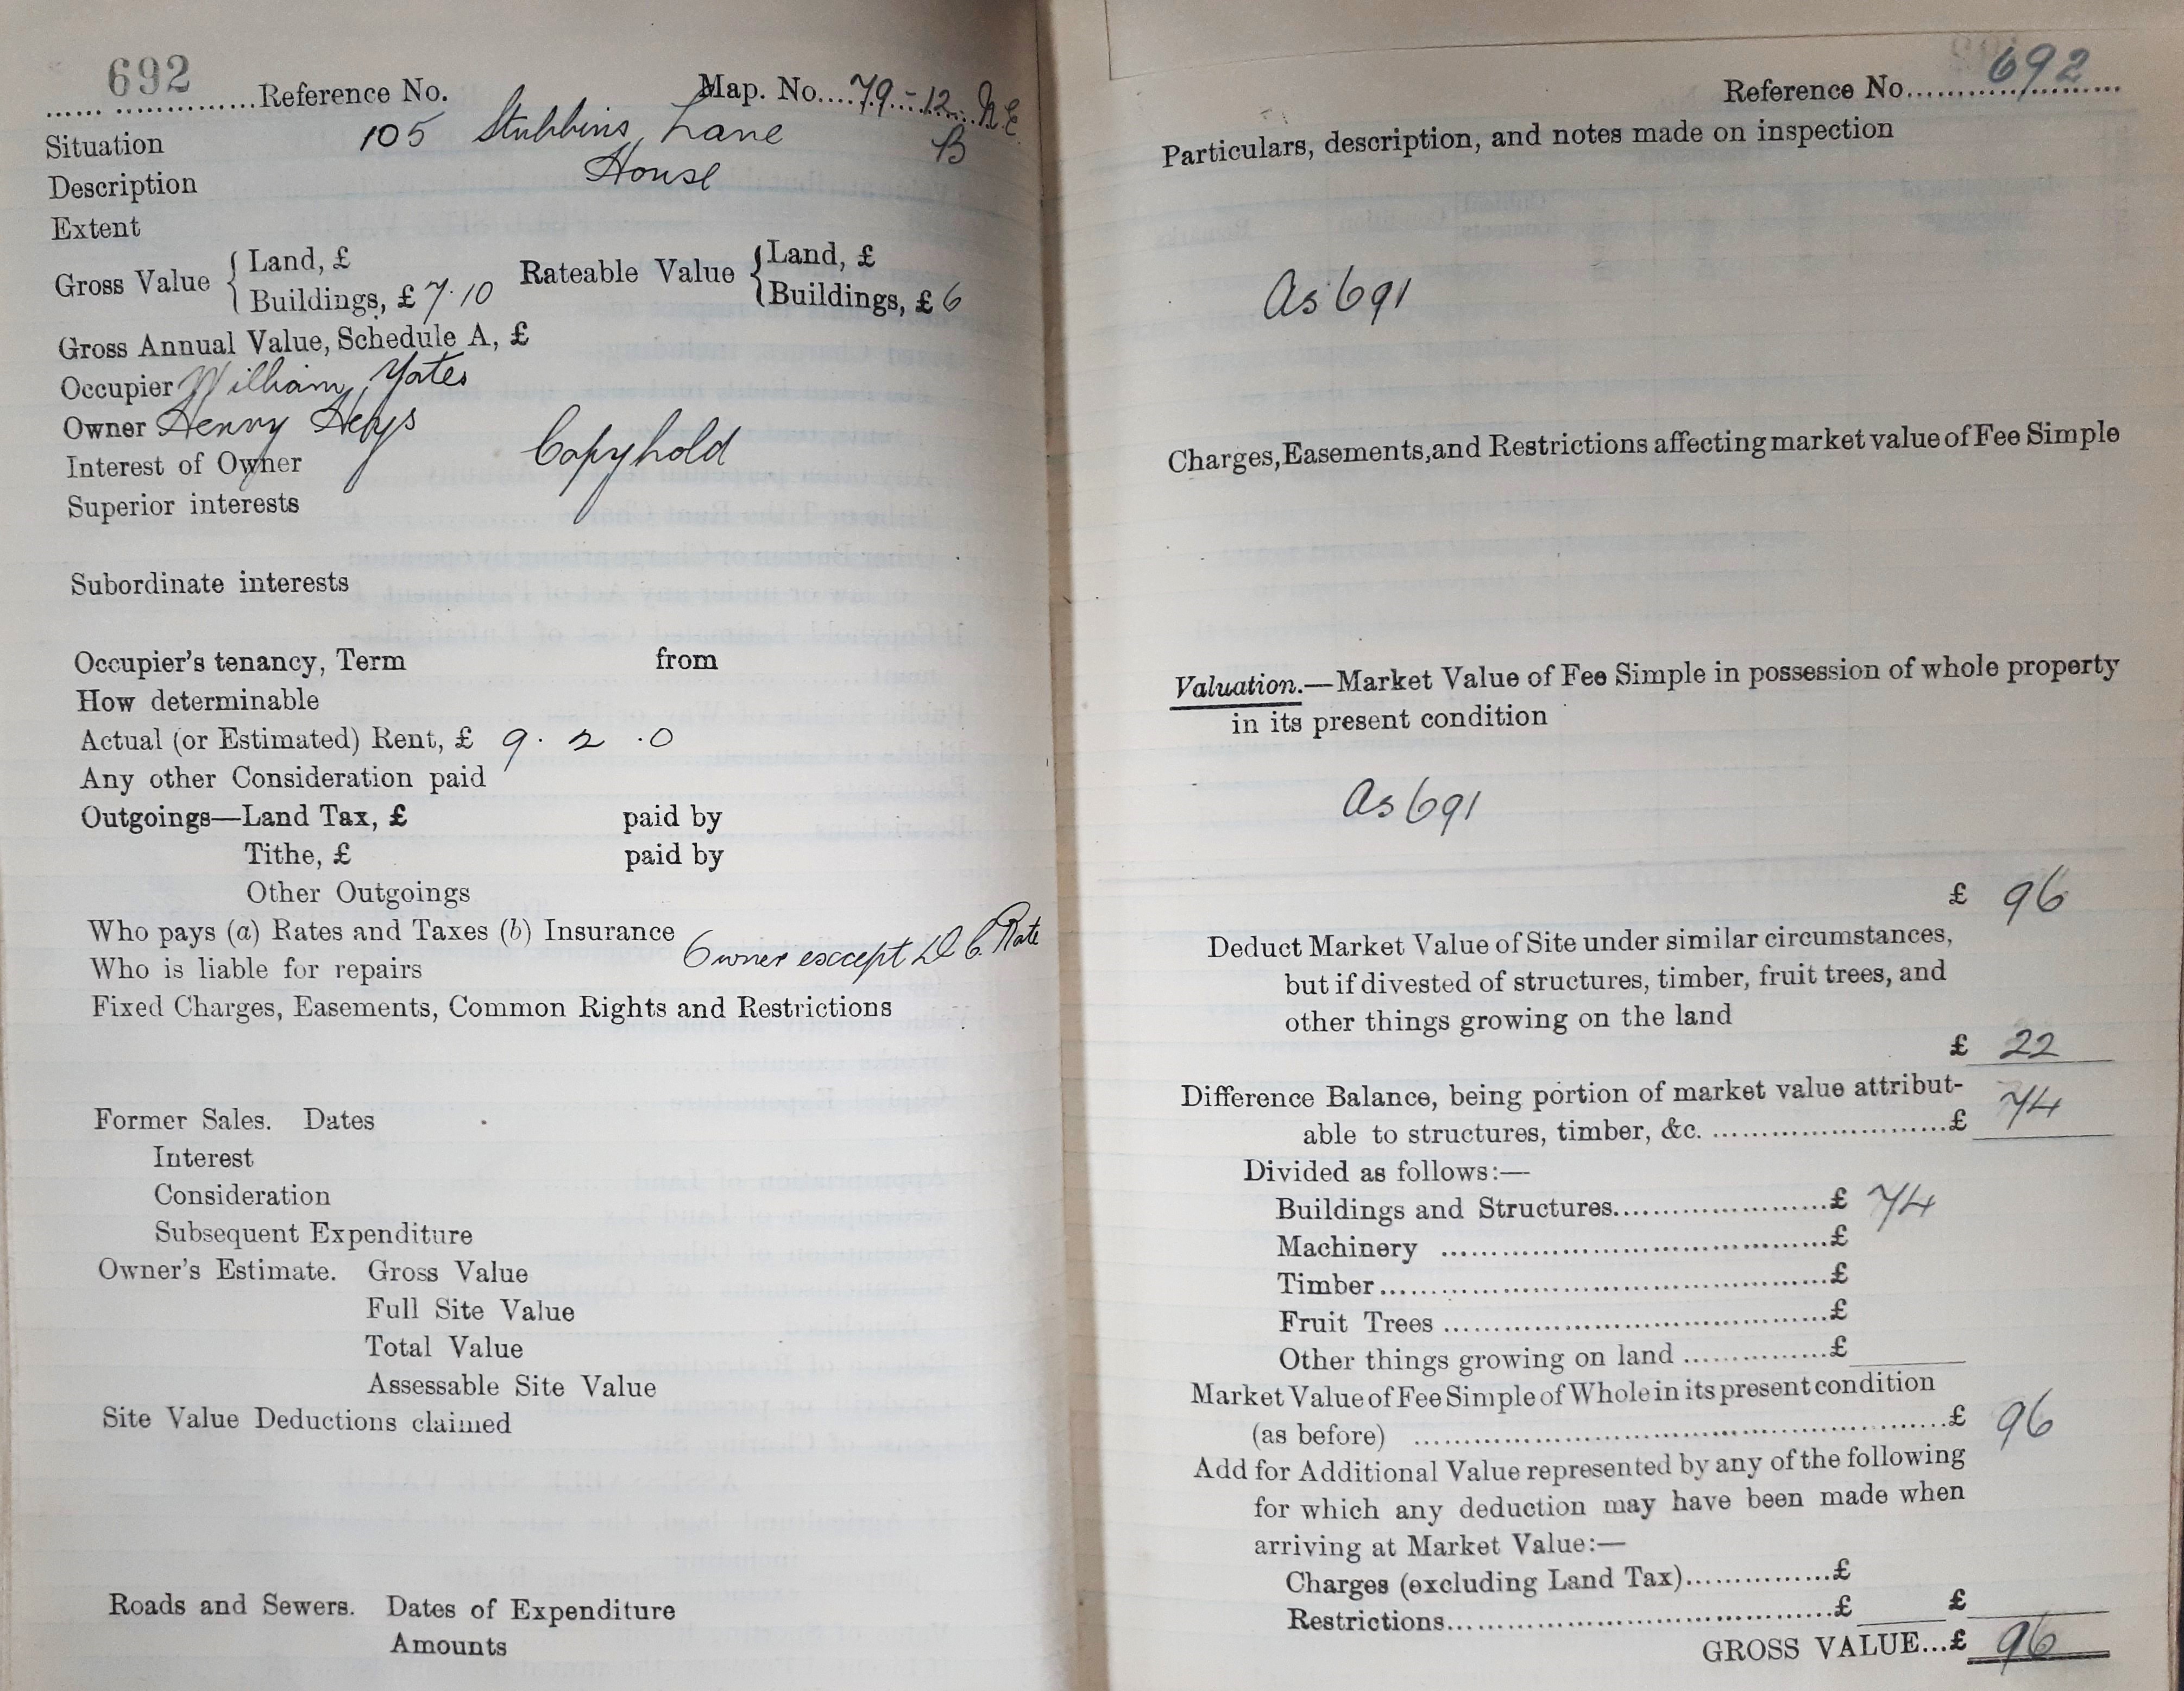 692
...... ...............Reference No. Map. No....79..-12...N.E.
Situation 105 Stubbins Lane B
Description House
Extent
Gross Value { Land, £ Rateable Value { Land, £
Buildings, £ 7.10 Buildings, £ 6
Gross Annual Value, Schedule A, £
Occupier William Yates
Owner Henry Heys
Interest of Owner Copyhold
Superior interests
Subordinate interests
Occupier's tenancy, Term from
How determinable
Actual (or Estimated) Rent, £ 9. 2 .0
Any other Consideration paid
Outgoings—Land Tax, £ paid by
Tithe, £ paid by
Other Outgoings
Who pays (a) Rates and Taxes (b) Insurance Owner except D C. Rate
Who is liable for repairs
Fixed Charges, Easements, Common Rights and Restrictions
Former Sales. Dates
Interest
Consideration
Subsequent Expenditure
Owner's Estimate. Gross Value
Full Site Value
Total Value
Assessable Site Value
Site Value Deductions claimed
Roads and Sewers. Dates of Expenditure
Amounts
Reference No....692....
Particulars, description, and notes made on inspection
As 691
Charges, Easements, and Restrictions affecting market value of Fee Simple
Valuation.—Market Value of Fee Simple in possession of whole property
in its present condition
As 691
£ 96
Deduct Market Value of Site under similar circumstances,
but if divested of structures, timber, fruit trees, and
other things growing on the land
£ 22
Difference Balance, being portion of market value attribut-
able to structures, timber, &c. ..........................£ 74
Divided as follows:—
Buildings and Structures.......................£ 74
Machinery ..........................................£
Timber................................................£
Fruit Trees .........................................£
Other things growing on land ...............£
Market Value of Fee Simple of Whole in its present condition
(as before) ..........................................................£ 96
Add for Additional Value represented by any of the following
for which any deduction may have been made when
arriving at Market Value:—
Charges (excluding Land Tax)...............£
Restrictions.........................................£ £
GROSS VALUE...£ 96